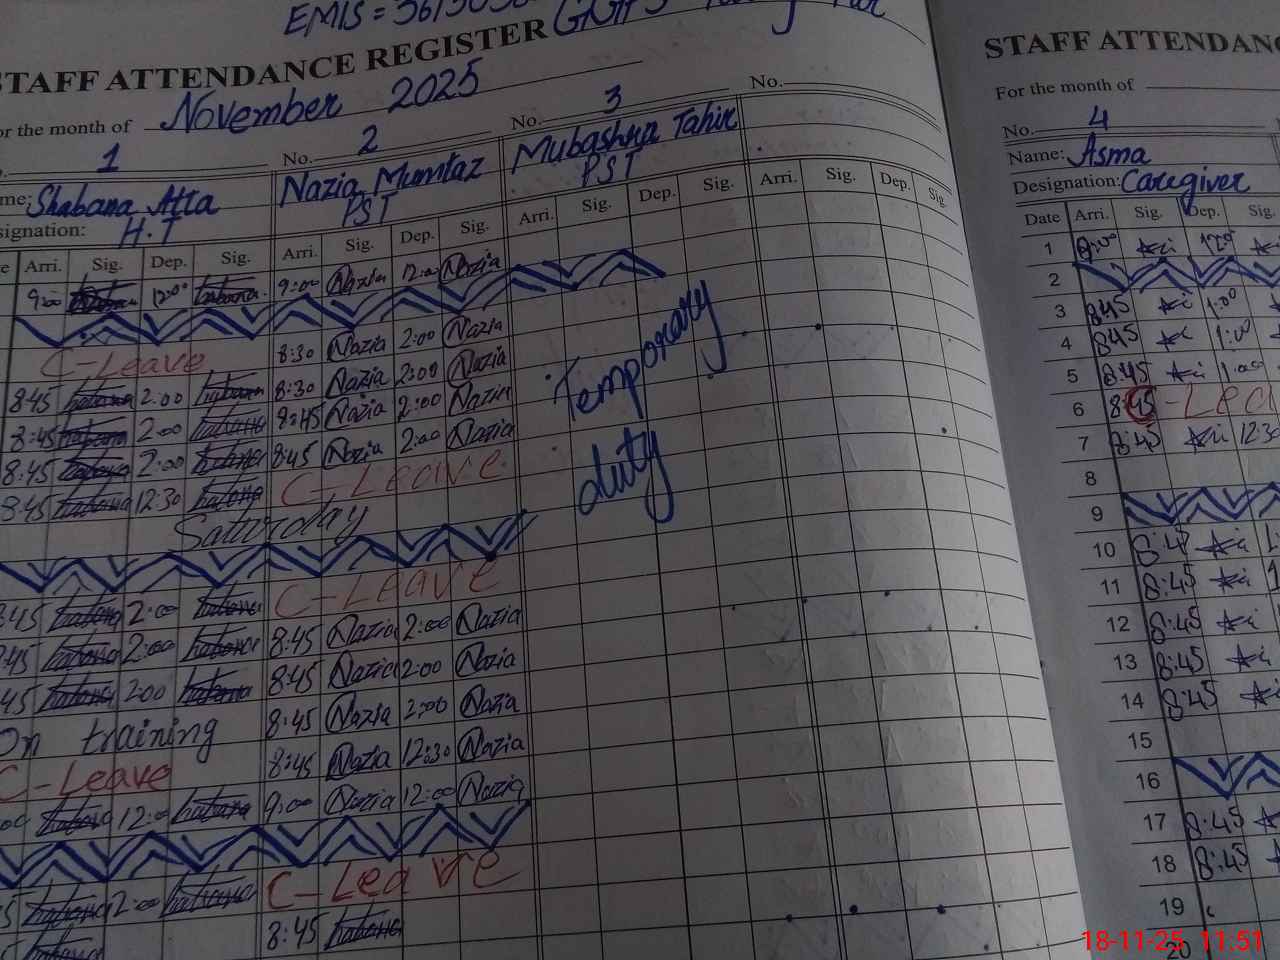 STAFF ATTENDANCE REGISTER
For the month of November 2025
1
No. 2
No. 3
No.
Name: Shabana Atta
Nazia Mumtaz
Mubashra Tahir
Designation: H.T
PST
PST
Arri. Sig. Dep. Sig. Arri. Sig. Dep. Sig. Arri. Sig. Dep. Sig. Arri. Sig. Dep. Sig.
9:00 12:00 9:00 Nazia 12:00 Nazia
C-Leave 8:30 Nazia 2:00 Nazia
8:45 2:00 8:30 Nazia 2:00 Nazia
8:45 2:00 8:45 Nazia 2:00 Nazia
8:45 2:00 8:45 Nazia 2:00 Nazia
8:45 12:30 C-Leave
Saturday
8:45 2:00 C-Leave
8:45 2:00 8:45 Nazia 2:00 Nazia
8:45 2:00 8:45 Nazia 2:00 Nazia
On training 8:45 Nazia 2:00 Nazia
C-Leave 8:45 Nazia 12:30 Nazia
12:00 9:00 Nazia 12:00 Nazia
2:00 C-Leave
8:45
Temporary
duty
STAFF ATTENDANC
For the month of
No. 4
Name: Asma
Designation: Caregiver
Date Arri. Sig. Dep. Sig.
1
2
3 8:45 1:00
4 8:45 1:00
5 8:45 1:00
6 8:45 -Lea
7 8:45 12:30
8
9
10 8:45
11 8:45
12 8:45
13 8:45
14 8:45
15
16
17 8:45
18 8:45
19
20
18-11-25 11:51